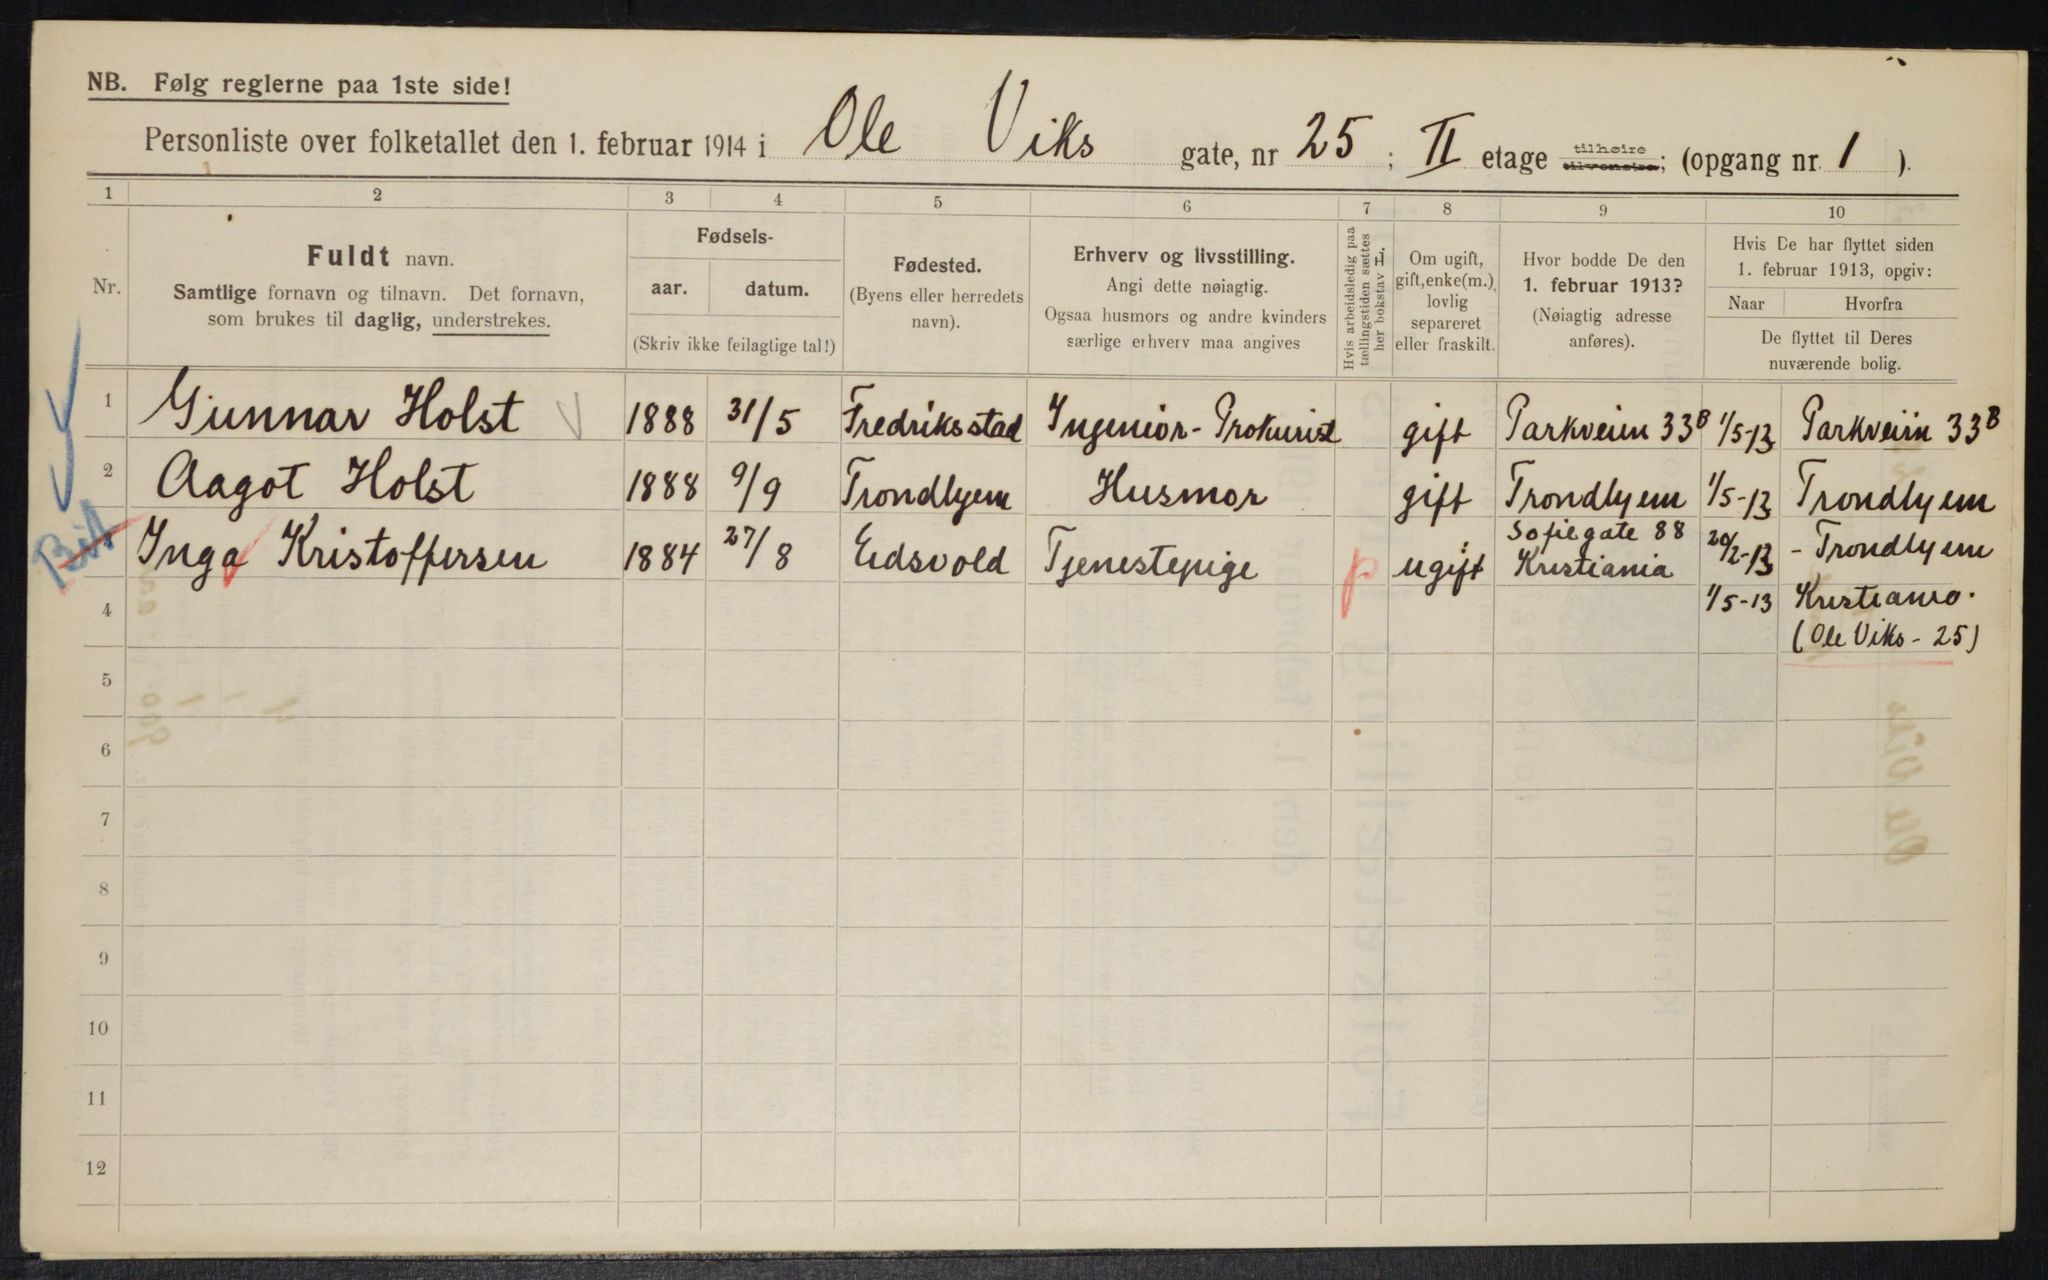 NB. Følg reglerne paa 1ste side!
Personliste over folketallet den 1. februar 1914 i Ole Viks gate, nr 25 ; II etage tilhøire tilvenstre; (opgang nr. 1 ).
1 2 3 4 5 6 7 8 9 10
Nr.
Fuldt navn.
Samtlige fornavn og tilnavn. Det fornavn,
som brukes til daglig, understrekes.
Fødsels-
aar. datum.
(Skriv ikke feilagtige tal!)
Fødested.
(Byens eller herredets
navn).
Erhverv og livsstilling.
Angi dette nøiagtig.
Ogsaa husmors og andre kvinders
særlige erhverv maa angives
Hvis arbeidsledig paa
tællingstiden sættes
her bokstav L.
Om ugift,
gift, enke(m.),
lovlig
separeret
eller fraskilt.
Hvor bodde De den
1. februar 1913?
(Nøiagtig adresse
anføres).
Hvis De har flyttet siden
1. februar 1913, opgiv:
Naar Hvorfra
De flyttet til Deres
nuværende bolig.
1 Gunnar Holst 1888 31/5 Fredriksstad Ingeniør - Prokurist gift Parkveien 33B 1/5-13 Parkveiin 33B
2 Aagot Holst 1888 9/9 Trondhjem Husmor gift Trondhjem 1/5-13 Trondhjem
Inga Kristoffersen 1884 27/8 Eidsvold Tjenestepige p ugift Sofiegate 88 Kristiania 20/2-13 - Trondhjem
4 1/5-13 Kristiania.
(Ole Viks - 25)
5
6
7
8
9
10
11
12